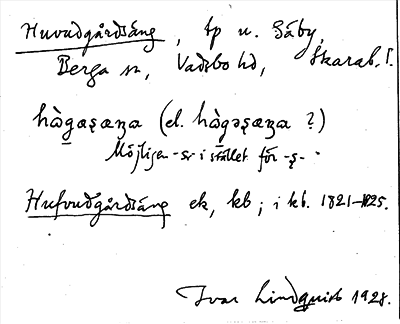 Huvudgårdsäng, tp u. Säby,
Berga sn, Vadsbo hd, Skarab. l.
hὰgaʂæŋa (el. hὰgəʂæŋa ?)
Möjligen -sr- i stället för -ʂ-.
Hufvudgårdsäng ek, kb; i kb. 1821-1825.
Ivar Lindquist 1928.